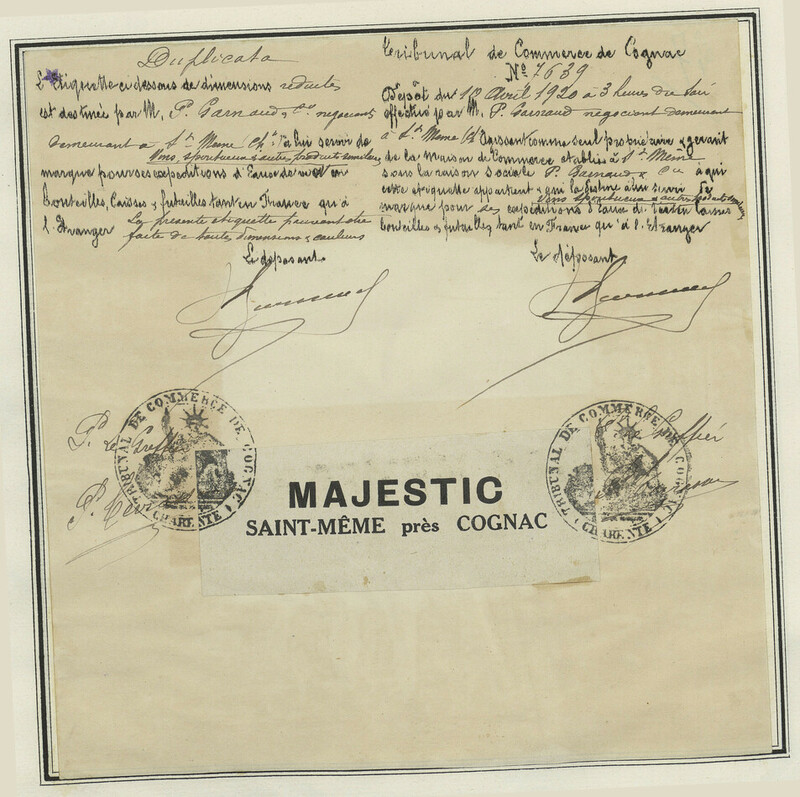 Duplicata
L'étiquette ci-dessous de dimensions réduites
est destinée par M. P. Garnaud & Co négociant
demeurant à St Même Chte à lui servir de
Vins, spiritueux & autres produits similaires
marque pour ses expéditions d'Eaux de vie en
bouteilles, caisses & futailles tant en France qu'à
l'Etranger La présente étiquette pouvant être
faite de toutes dimensions & couleurs
Le déposant
Tribunal de Commerce de Cognac
No 7639
Dépôt du Avril 1920 à 3 heures du soir
effectué par M. P. Garnaud négociant demeurant
à St Même Agissant comme seul propriétaire & gérant
de la maison de Commerce établie à St Même
sous la raison sociale P. Garnaud & Cie à qui
cette étiquette appartient & qui la destine à lui servir de
Vins spiritueux & autres produits
marque pour des expéditions d'eaux de vie en caisses
bouteilles & futailles tant en France qu'à l'Etranger
Le déposant
TRIBUNAL DE COMMERCE DE COGNAC
(CHARENTE)
P. le Greffier
TRIBUNAL DE COMMERCE DE COGNAC
(CHARENTE)
Greffier
MAJESTIC
SAINT-MÊME près COGNAC